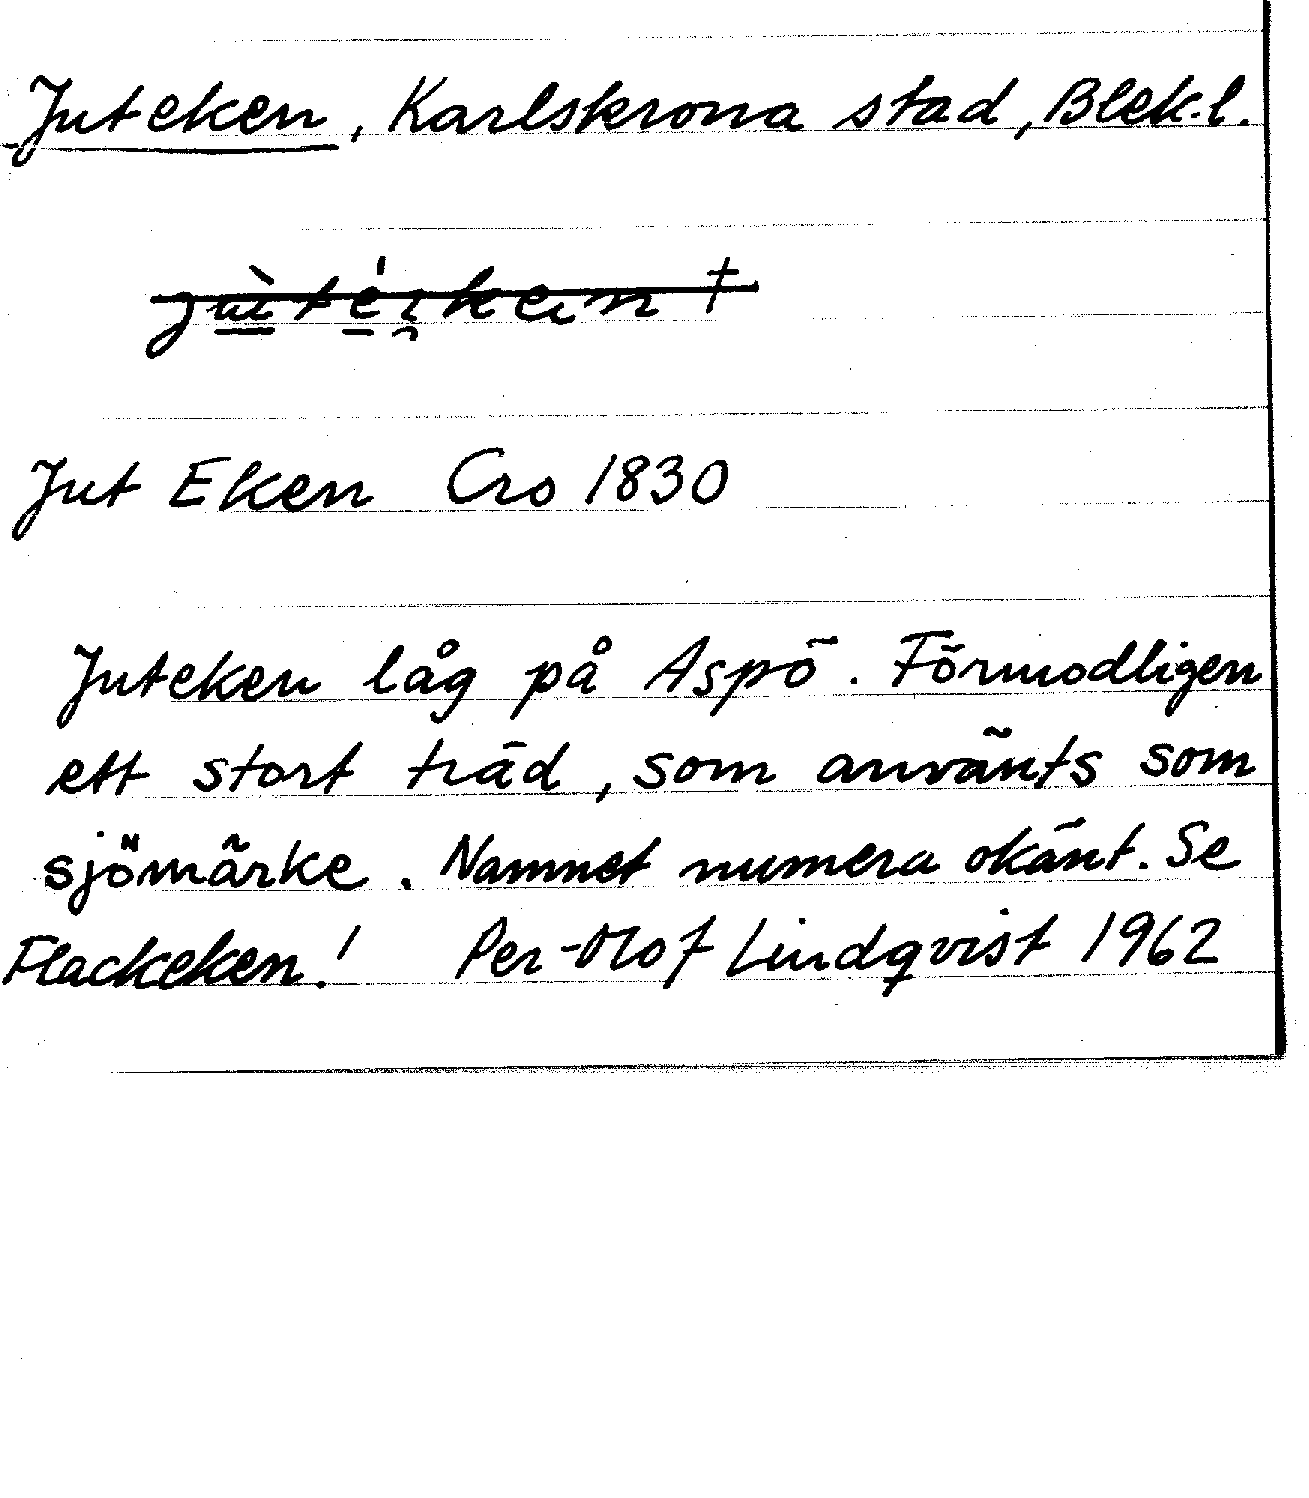 Juteken, Karlskrona stad, Blek.l.
Jut Eken Cro 1830
Juteken låg på Aspö. Förmodligen
ett stort träd, som använts som
sjömärke. Namnet numera okänt. Se
Flackeken! Per-Olof Lindqvist 1962